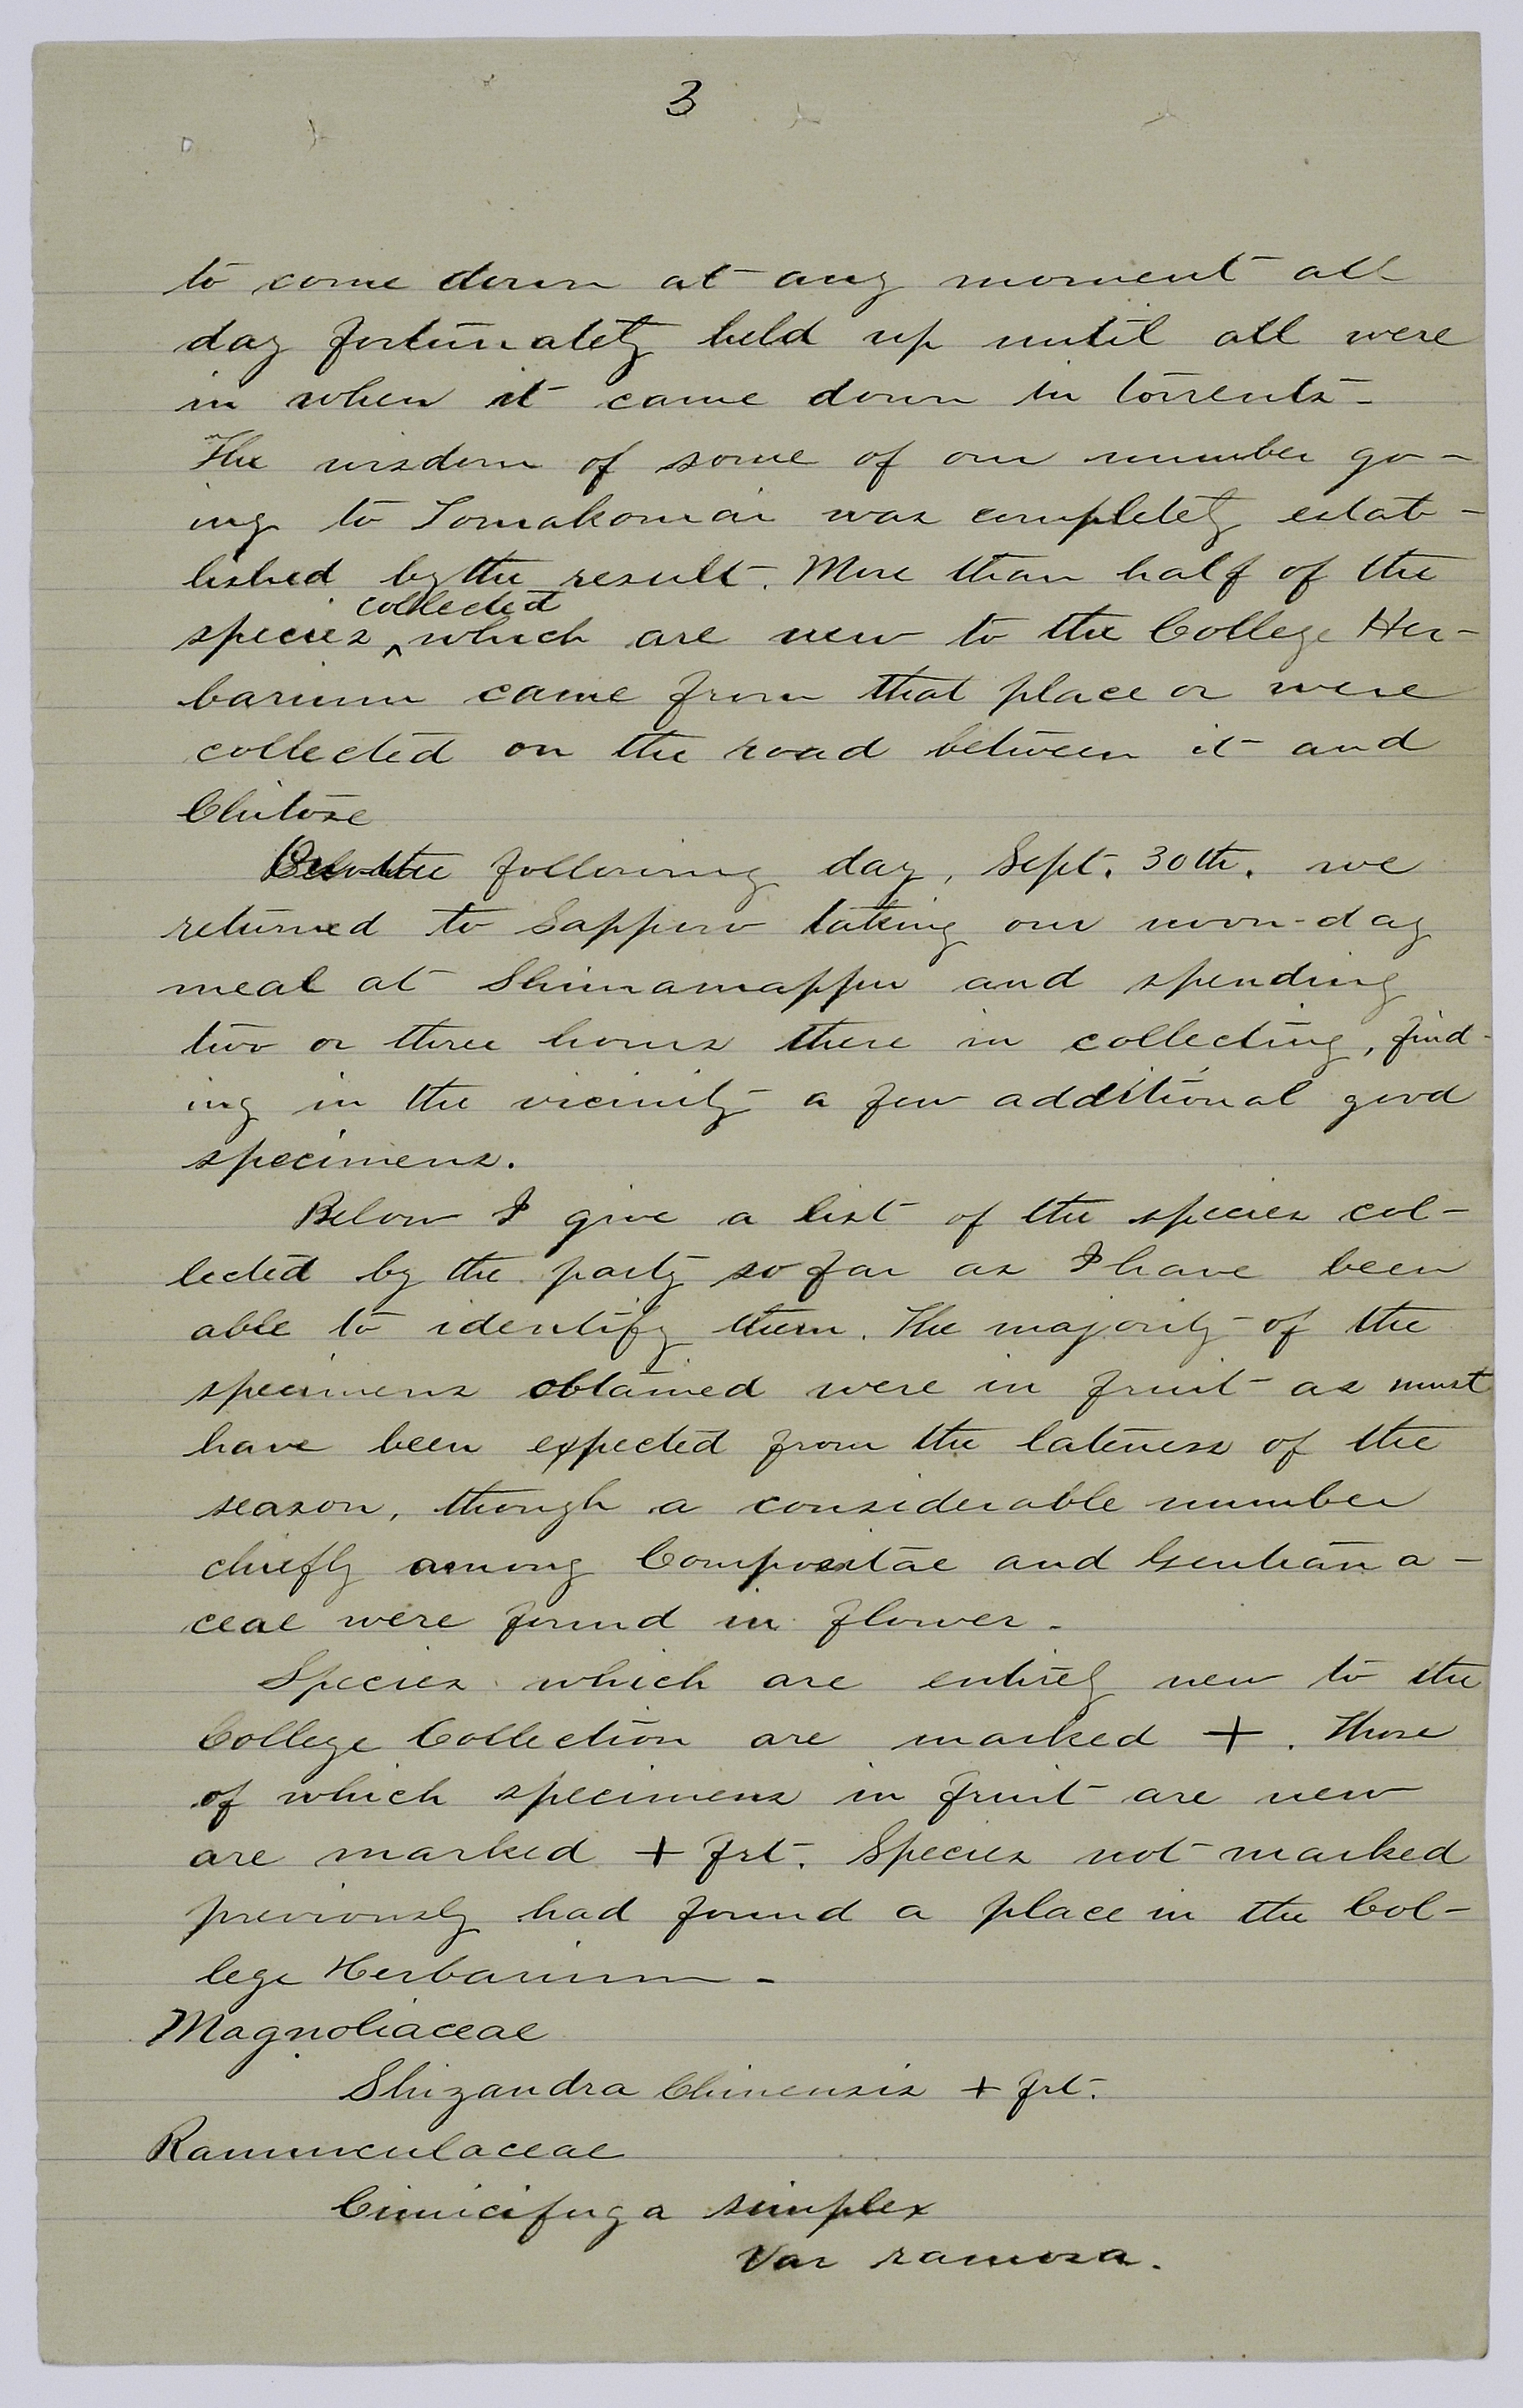 3
to come down at any moment all
day fortunately held up until all were
in when it came down in torrents.
The wisdom of some of our number go-
ing to Tomakomai was completely estab-
lished by the result. More than half of the
collected
species ^ which are new to the College Her-
barium came from that place or were
collected on the road between it and
Chitose
the following day, Sept. 30th. we
returned to Sapporo taking our noon-day
meal at Shimamappu and spending
two or three hours there in collecting, find-
ing in the vicinity a few additional good
specimens.
Below I give a list of the species col-
lected by the party so far as I have been
able to identify them. The majority of the
specimens obtained were in fruit as must
have been expected from the lateness of the
season, though a considerable number
chiefly among Compositae and Gentiana-
ceae were found in flower.
Species which are entirely new to the
College Collection are marked +. Those
of which specimens in fruit are new
are marked + frt. Species not marked
previously had found a place in the Col-
lege Herbarium.
Magnoliaceae
Shizandra Chinensis + frt.
Ranunculaceae
Cimicifuga simplex
Var ramosa.